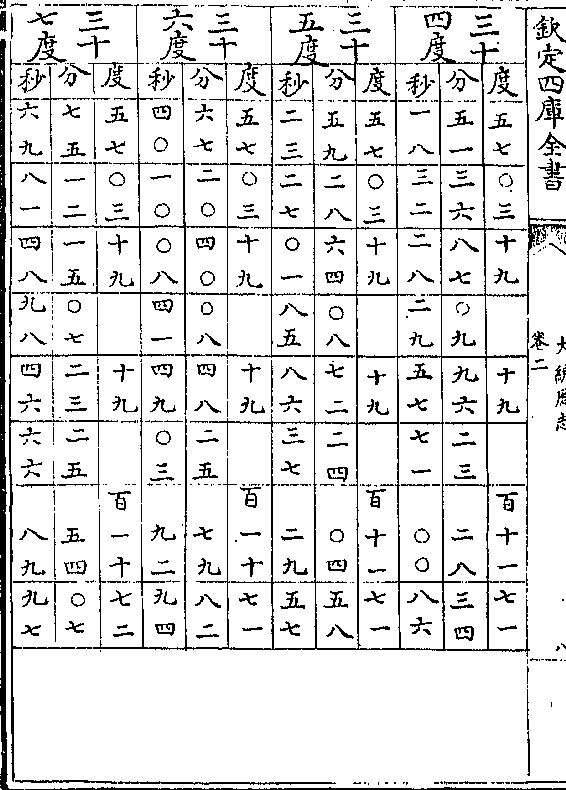 欽定四庫全書
大統厯志
卷二
八
三十四度
度 五七 〇三 十九 十九 百十一 七一
分 五一 三六 八七 〇九 九六 二三 二八 三四
秒 一八 三二 二八 二九 五七 七一 〇〇 八六
三十五度
度 五七 〇三 十九 十九 百十一 七一
分 五九 二八 六四 〇八 七二 二四 〇四 五八
秒 二三 二七 〇一 八五 八六 三七 二九 五七
三十六度
度 五七 〇三 十九 十九 百一十 七一
分 六七 二〇 四〇 〇八 四八 二五 七九 八二
秒 四〇 一〇 〇八 四一 四九 〇三 九二 九四
三十七度
度 五七 〇三 十九 十九 百一十 七二
分 七五 一二 一五 〇七 二三 二五 五四 〇七
秒 六九 八一 四八 九八 四六 六六 八九 九七